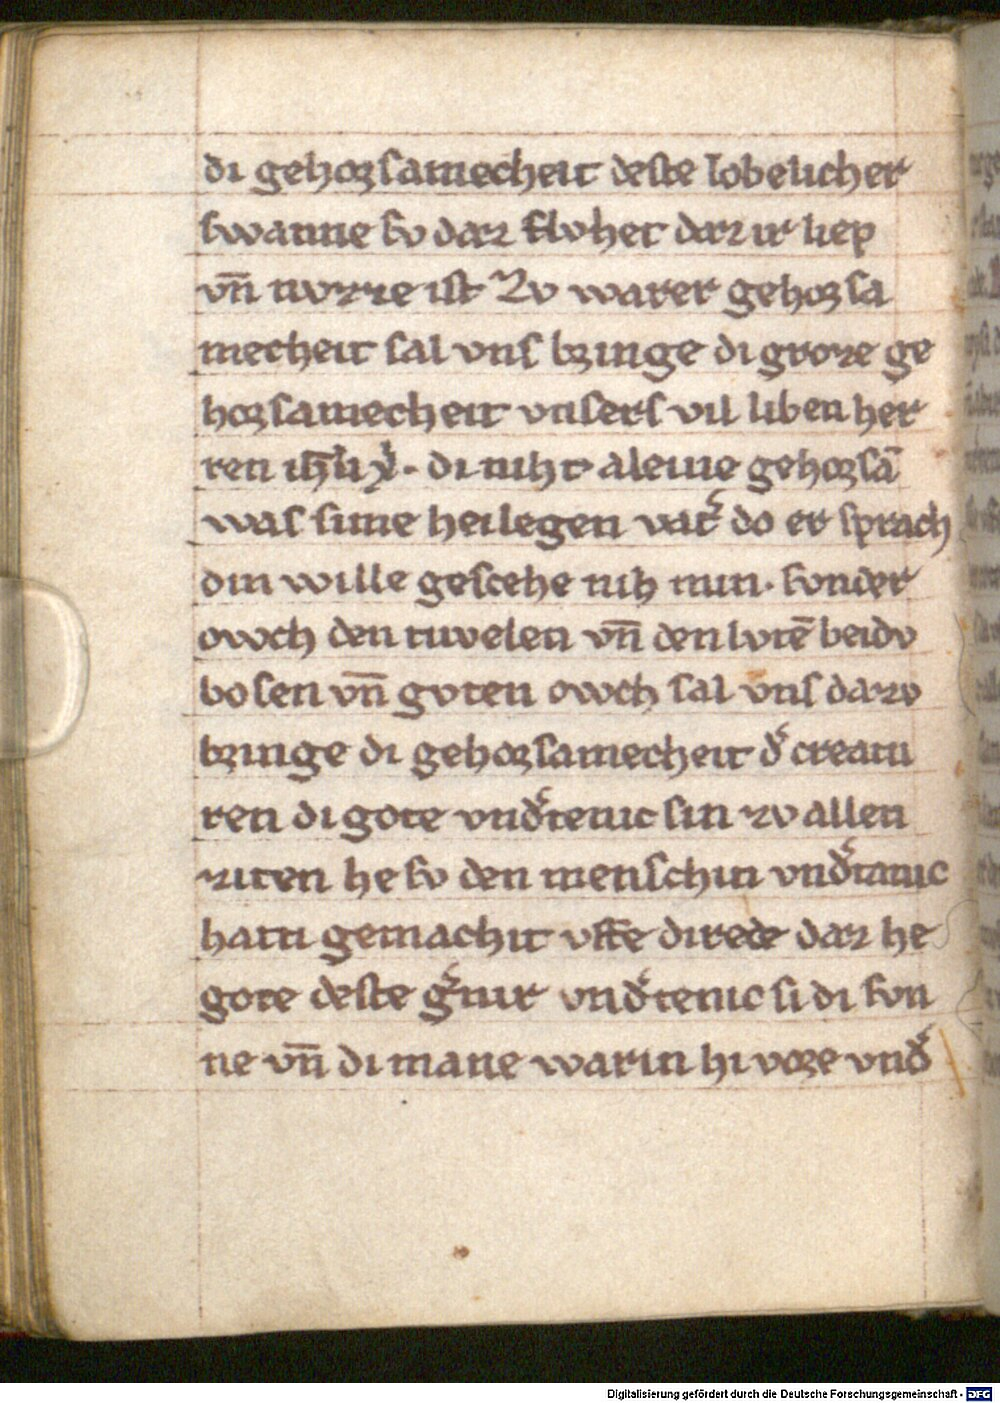 di gehorsamecheit deste lobelicher
swanne so daz flohet daz ir liep
vn̄ nvzze ist Zv warer gehorsa
mecheit sal vns bringe di groze ge
horsamecheit vnsers vil liben her
ren ih̄u xp̄i · di niht aleine gehorsā
was sime heilegen vat͛ do er sprach
din wille gescehe niht min · svnder
owch den tuvelen vn̄ den lvtē beidv
bosen vn̄ gvten owch sal vns darzv
bringe di gehorsamecheit d͛ creatu
ren di gote vnd͛tenic sin zv allen
ziten he so den menschin vnd͛tanic
hati gemachit vffe di rede daz he
gote deste g͛nir vnd͛tenic si di svn
ne vn̄ di mane warin hi vore vnd͛
Digitalisierung gefördert durch die Deutsche Forschungsgemeinschaft - DFG